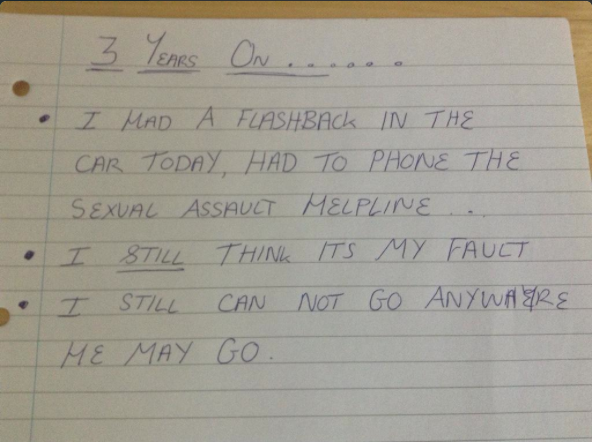 3 YEARS ON......
• I HAD A FLASHBACK IN THE
CAR TODAY, HAD TO PHONE THE
SEXUAL ASSAULT HELPLINE ...
• I STILL THINK ITS MY FAULT
• I STILL CAN NOT GO ANYWHERE
HE MAY GO.